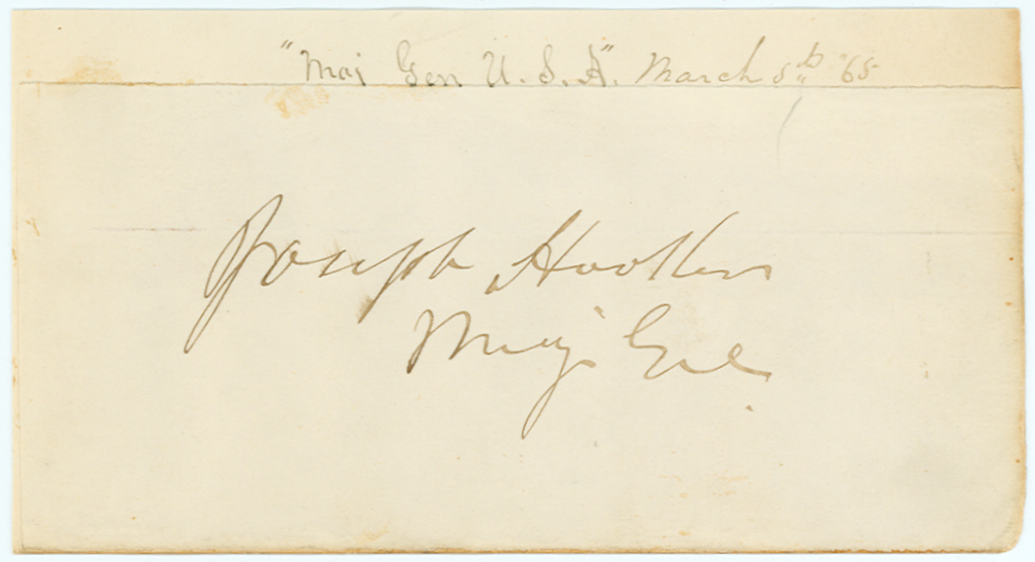 "Maj Gen U.S.A". March 5th '65
Joseph Hooker
Maj Genl